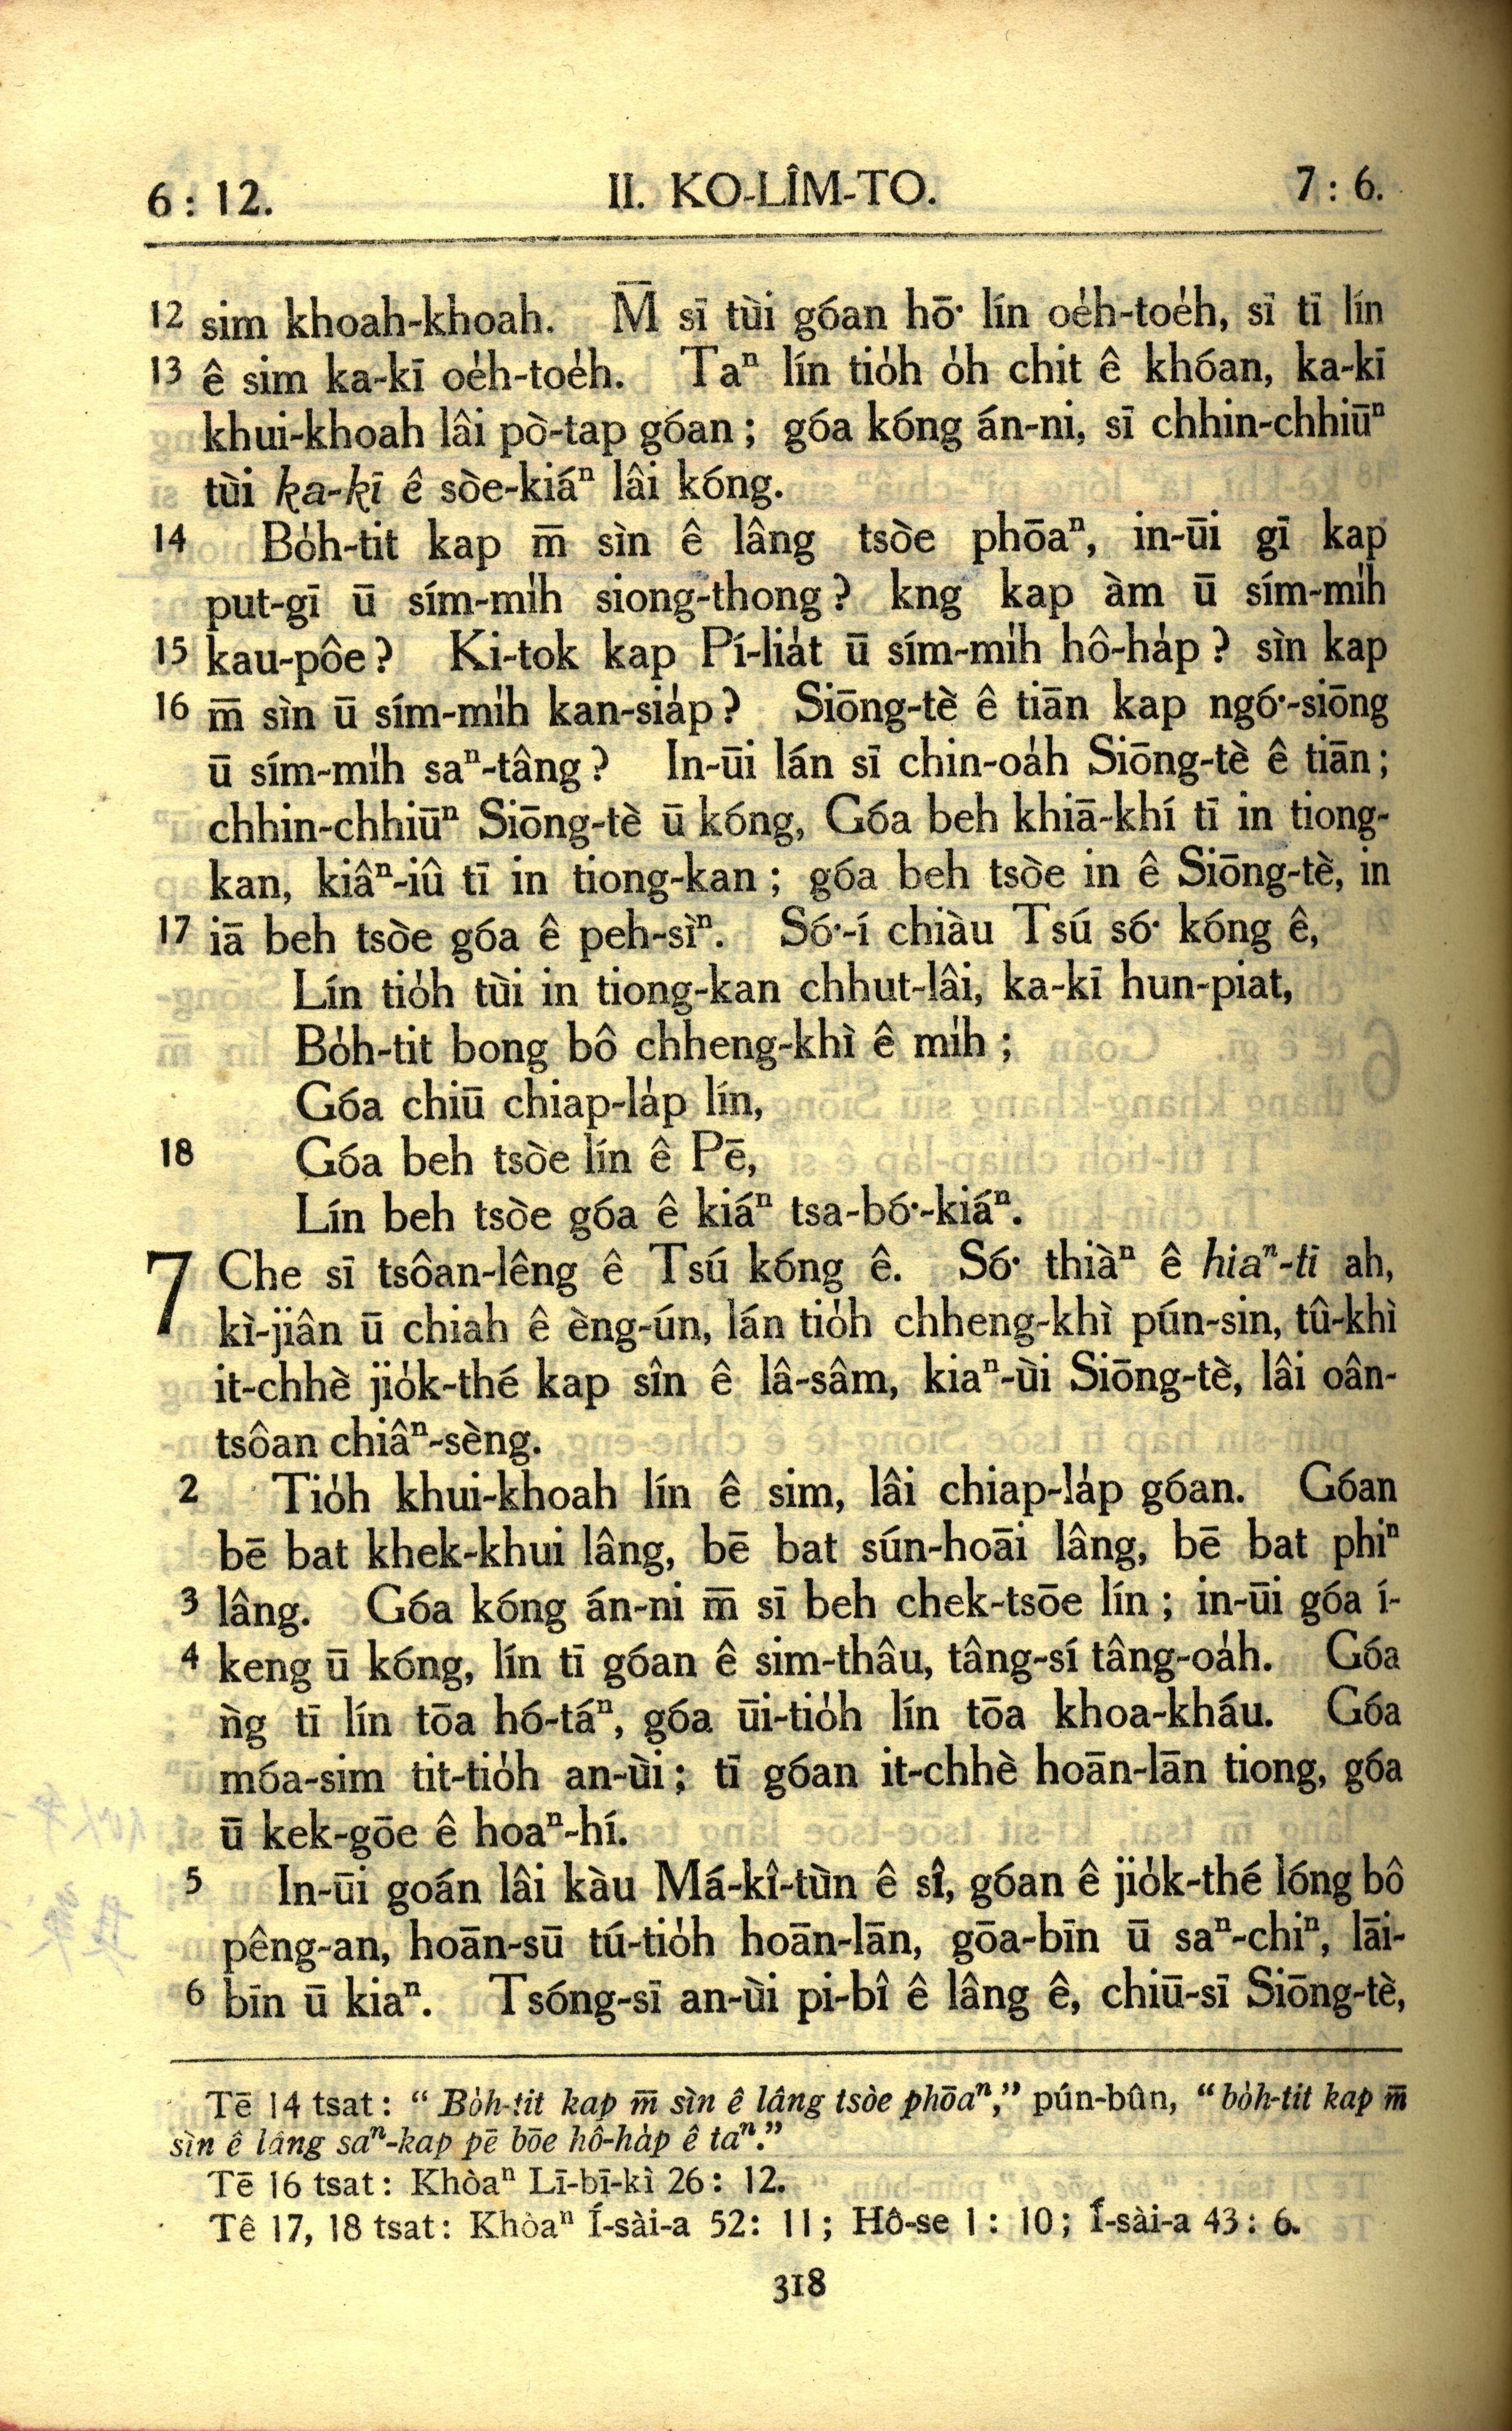 6 : 12. II. KO-LÎM-TO. 7 : 6.
12 sim khoah-khoah. M̄ sī tùi góan hō͘ lín oe̍h-toe̍h, sī tī lín
13 ê sim ka-kī oe̍h-toe̍h. Taⁿ lín tio̍h o̍h chit ê khóan, ka-kī
khui-khoah lâi pò-tap góan; góa kóng án-ni, sī chhin-chhiūⁿ
tùi ka-kī ê sòe-kiáⁿ lâi kóng.
14 Bo̍h-tit kap m̄ sìn ê lâng tsòe phōaⁿ, in-ūi gī kap
put-gī ū sím-mi̍h siong-thong? kng kap àm ū sím-mi̍h
15 kau-pôe? Ki-tok kap Pí-lia̍t ū sím-mi̍h hô-ha̍p? sìn kap
16 m̄ sìn ū sím-mi̍h kan-sia̍p? Siōng-tè ê tiān kap ngó͘-siōng
ū sím-mi̍h saⁿ-tâng? In-ūi lán sī chin-oa̍h Siōng-tè ê tiān;
chhin-chhiūⁿ Siōng-tè ū kóng, Góa beh khiā-khí tī in tiong-
kan, kiâⁿ-iû tī in tiong-kan; góa beh tsòe in ê Siōng-tè, in
17 iā beh tsòe góa ê peh-sìⁿ. Só͘-í chiàu Tsú só͘ kóng ê,
Lín tio̍h tùi in tiong-kan chhut-lâi, ka-kī hun-piat,
Bo̍h-tit bong bô chheng-khì ê mi̍h;
Góa chiū chiap-la̍p lín,
18 Góa beh tsòe lín ê Pē,
Lín beh tsòe góa ê kiáⁿ tsa-bó͘-kiáⁿ.
7 Che sī tsôan-lêng ê Tsú kóng ê. Só͘ thiàⁿ ê hiaⁿ-tī ah,
kì-jiân ū chiah ê èng-ún, lán tio̍h chheng-khì pún-sin, tû-khì
it-chhè jio̍k-thé kap sîn ê lâ-sâm, kiaⁿ-ùi Siōng-tè, lâi oân-
tsôan chiâⁿ-sèng.
2 Tio̍h khui-khoah lín ê sim, lâi chiap-la̍p góan. Góan
bē bat khek-khui lâng, bē bat sún-hoāi lâng, bē bat phiⁿ
3 lâng. Góa kóng án-ni m̄ sī beh chek-tsōe lín; in-ūi góa í-
4 keng ū kóng, lín tī góan ê sim-thâu, tâng-sí tâng-oa̍h. Góa
ǹg tī lín tōa hó-táⁿ, góa ūi-tio̍h lín tōa khoa-kháu. Góa
móa-sim tit-tio̍h an-ùi; tī góan it-chhè hoān-lān tiong, góa
ū kek-gōe ê hoaⁿ-hí.
5 In-ūi goán lâi kàu Má-kî-tùn ê sî, góan ê jio̍k-thé lóng bô
pêng-an, hoān-sū tú-tio̍h hoān-lān, gōa-bīn ū saⁿ-chiⁿ, lāi-
6 bīn ū kiaⁿ. Tsóng-sī an-ùi pi-bî ê lâng ê, chiū-sī Siōng-tè,
Tē 14 tsat: “Bo̍h-tit kap m̄ sìn ê lâng tsòe phōaⁿ,” pún-bûn, “bo̍h-tit kap m̄
sìn ê lâng saⁿ-kap pē bōe hô-ha̍p ê taⁿ.”
Tē 16 tsat: Khòaⁿ Lī-bī-kì 26: 12.
Tê 17, 18 tsat: Khòaⁿ Í-sài-a 52: 11; Hô-se 1: 10; Í-sài-a 43: 6.
318